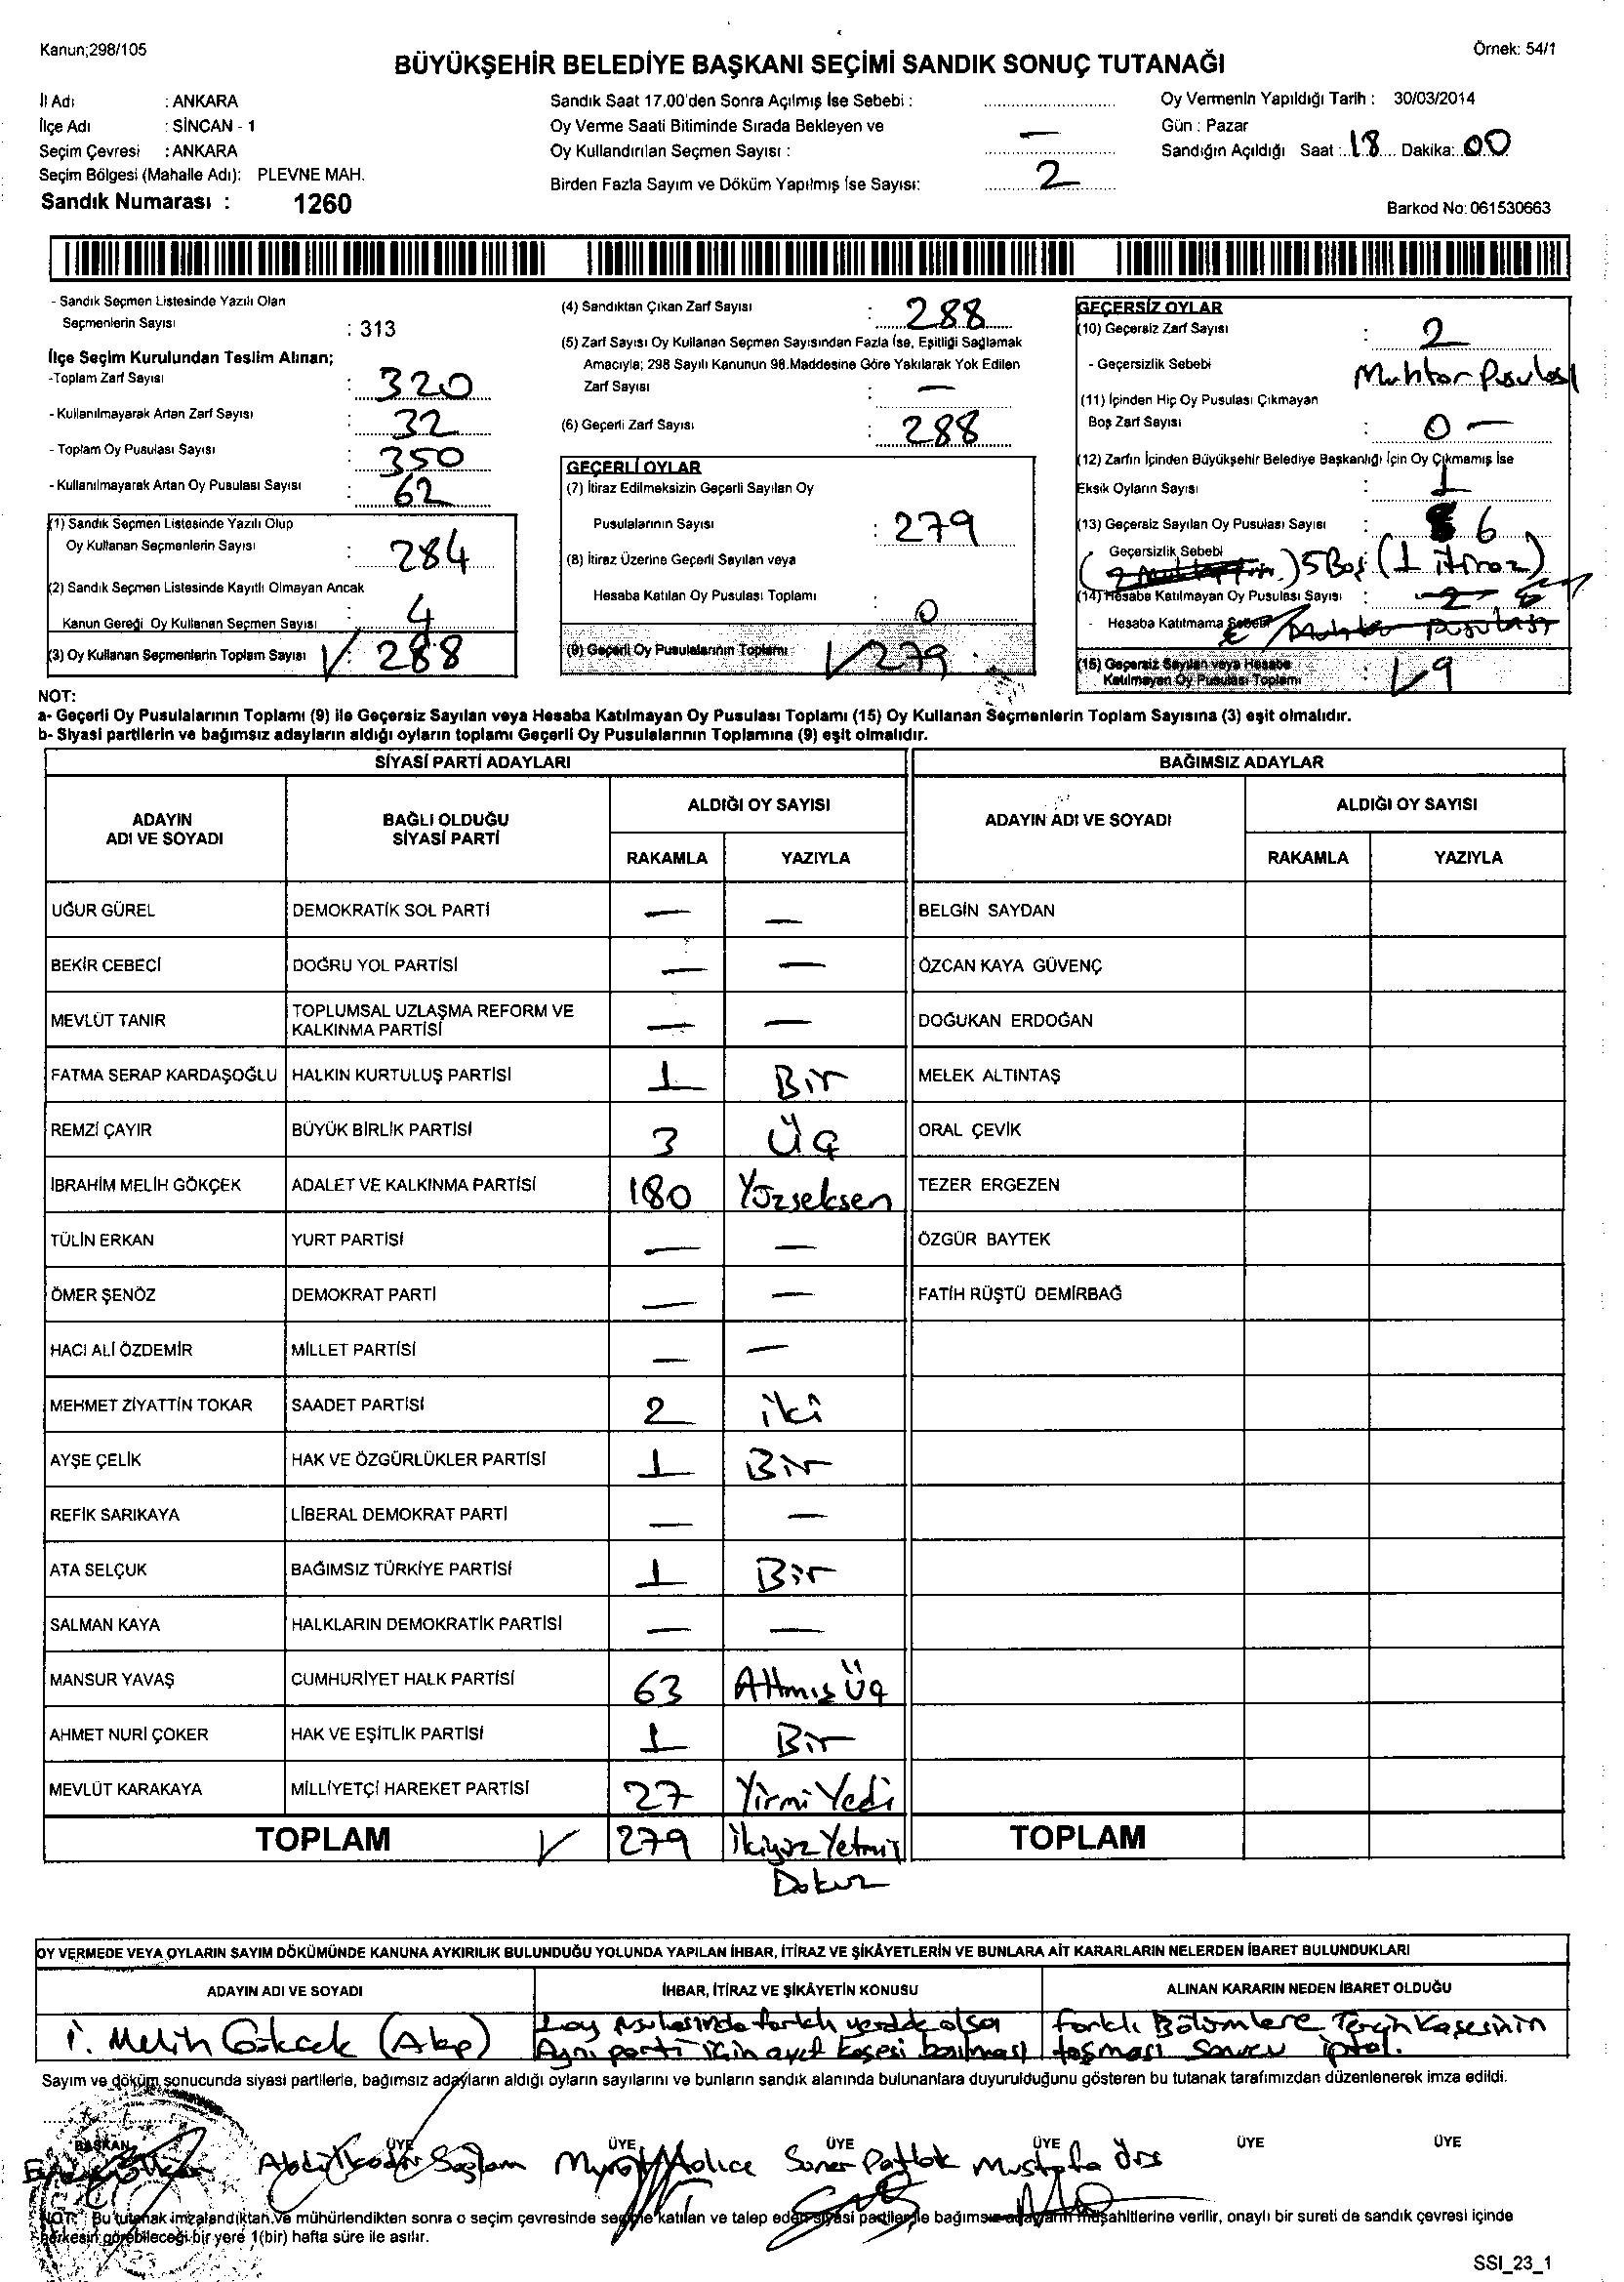 Kanun;298/105
Örnek: 54/1
BÜYÜKŞEHİR BELEDİYE BAŞKANI SEÇİMİ SANDIK SONUÇ TUTANAĞI
İl Adı : ANKARA
İlçe Adı : SİNCAN - 1
Seçim Çevresi : ANKARA
Seçim Bölgesi (Mahalle Adı): PLEVNE MAH.
Sandık Numarası : 1260
Sandık Saat 17.00'den Sonra Açılmış İse Sebebi :
Oy Verme Saati Bitiminde Sırada Bekleyen ve
Oy Kullandırılan Seçmen Sayısı : —
Birden Fazla Sayım ve Döküm Yapılmış İse Sayısı: 2
Oy Vermenin Yapıldığı Tarih : 30/03/2014
Gün : Pazar
Sandığın Açıldığı Saat : 18 Dakika: 00
Barkod No: 061530663
- Sandık Seçmen Listesinde Yazılı Olan
Seçmenlerin Sayısı : 313
İlçe Seçim Kurulundan Teslim Alınan;
-Toplam Zarf Sayısı : 320
- Kullanılmayarak Artan Zarf Sayısı : 32
- Toplam Oy Pusulası Sayısı : 350
- Kullanılmayarak Artan Oy Pusulası Sayısı : 62
(1) Sandık Seçmen Listesinde Yazılı Olup
Oy Kullanan Seçmenlerin Sayısı : 284
(2) Sandık Seçmen Listesinde Kayıtlı Olmayan Ancak
Kanun Gereği Oy Kullanan Seçmen Sayısı : 4
(3) Oy Kullanan Seçmenlerin Toplam Sayısı : 288
(4) Sandıktan Çıkan Zarf Sayısı : 288
(5) Zarf Sayısı Oy Kullanan Seçmen Sayısından Fazla İse, Eşitliği Sağlamak
Amacıyla; 298 Sayılı Kanunun 98.Maddesine Göre Yakılarak Yok Edilen
Zarf Sayısı : —
(6) Geçerli Zarf Sayısı : 288
GEÇERLİ OYLAR
(7) İtiraz Edilmeksizin Geçerli Sayılan Oy
Pusulalarının Sayısı : 279
(8) İtiraz Üzerine Geçerli Sayılan veya
Hesaba Katılan Oy Pusulası Toplamı : 0
(9) Geçerli Oy Pusulalarının Toplamı : 279
GEÇERSİZ OYLAR
(10) Geçersiz Zarf Sayısı : 2
- Geçersizlik Sebebi Muhtar Pusulası
(11) İçinden Hiç Oy Pusulası Çıkmayan
Boş Zarf Sayısı : 0 —
(12) Zarfın İçinden Büyükşehir Belediye Başkanlığı İçin Oy Çıkmamış İse
Eksik Oyların Sayısı : 1
(13) Geçersiz Sayılan Oy Pusulası Sayısı : 6
Geçersizlik Sebebi 5 Boş (1 itiraz)
(14) Hesaba Katılmayan Oy Pusulası Sayısı :
- Hesaba Katılmama Sebebi Muhtar Pusulası
(15) Geçersiz Sayılan veya Hesaba
Katılmayan Oy Pusulası Toplamı : 9
NOT:
a- Geçerli Oy Pusulalarının Toplamı (9) ile Geçersiz Sayılan veya Hesaba Katılmayan Oy Pusulası Toplamı (15) Oy Kullanan Seçmenlerin Toplam Sayısına (3) eşit olmalıdır.
b- Siyasi partilerin ve bağımsız adayların aldığı oyların toplamı Geçerli Oy Pusulalarının Toplamına (9) eşit olmalıdır.
SİYASİ PARTİ ADAYLARI BAĞIMSIZ ADAYLAR
ADAYIN ADI VE SOYADI BAĞLI OLDUĞU SİYASİ PARTİ ALDIĞI OY SAYISI ADAYIN ADI VE SOYADI ALDIĞI OY SAYISI
RAKAMLA YAZIYLA RAKAMLA YAZIYLA
UĞUR GÜREL DEMOKRATİK SOL PARTİ — — BELGİN SAYDAN
BEKİR CEBECİ DOĞRU YOL PARTİSİ — — ÖZCAN KAYA GÜVENÇ
MEVLÜT TANIR TOPLUMSAL UZLAŞMA REFORM VE KALKINMA PARTİSİ — — DOĞUKAN ERDOĞAN
FATMA SERAP KARDAŞOĞLU HALKIN KURTULUŞ PARTİSİ 1 Bir MELEK ALTINTAŞ
REMZİ ÇAYIR BÜYÜK BİRLİK PARTİSİ 3 Üç ORAL ÇEVİK
İBRAHİM MELİH GÖKÇEK ADALET VE KALKINMA PARTİSİ 180 Yüzseksen TEZER ERGEZEN
TÜLİN ERKAN YURT PARTİSİ — — ÖZGÜR BAYTEK
ÖMER ŞENÖZ DEMOKRAT PARTİ — — FATİH RÜŞTÜ DEMİRBAĞ
HACI ALİ ÖZDEMİR MİLLET PARTİSİ — —
MEHMET ZİYATTİN TOKAR SAADET PARTİSİ 2 iki
AYŞE ÇELİK HAK VE ÖZGÜRLÜKLER PARTİSİ 1 Bir
REFİK SARIKAYA LİBERAL DEMOKRAT PARTİ — —
ATA SELÇUK BAĞIMSIZ TÜRKİYE PARTİSİ 1 Bir
SALMAN KAYA HALKLARIN DEMOKRATİK PARTİSİ — —
MANSUR YAVAŞ CUMHURİYET HALK PARTİSİ 63 Altmış Üç
AHMET NURİ ÇOKER HAK VE EŞİTLİK PARTİSİ 1 Bir
MEVLÜT KARAKAYA MİLLİYETÇİ HAREKET PARTİSİ 27 Yirmi Yedi
TOPLAM 279 İkiyüz Yetmiş TOPLAM
Dokuz
OY VERMEDE VEYA OYLARIN SAYIM DÖKÜMÜNDE KANUNA AYKIRILIK BULUNDUĞU YOLUNDA YAPILAN İHBAR, İTİRAZ VE ŞİKÂYETLERİN VE BUNLARA AİT KARARLARIN NELERDEN İBARET BULUNDUKLARI
ADAYIN ADI VE SOYADI İHBAR, İTİRAZ VE ŞİKÂYETİN KONUSU ALINAN KARARIN NEDEN İBARET OLDUĞU
İ. Melih Gökçek (Akp) 1 oy pusulasında farklı yerde olsa Farklı Bölümlere Tercih Kaşesinin
Aynı parti için evet kaşesi basılması taşması sonucu iptal.
Sayım ve döküm sonucunda siyasi partilerle, bağımsız adayların aldığı oyların sayılarını ve bunların sandık alanında bulunanlara duyurulduğunu gösteren bu tutanak tarafımızdan düzenlenerek imza edildi.
BAŞKAN ÜYE ÜYE ÜYE ÜYE ÜYE ÜYE
Abdülkadir Sağlam Soner Patlak Mustafa Örs
NOT: Bu tutanak imzalandıktan ve mühürlendikten sonra o seçim çevresinde seçime katılan ve talep eden siyasi partilerle bağımsız adayların müşahitlerine verilir, onaylı bir sureti de sandık çevresi içinde
herkesin görebileceği bir yere 1(bir) hafta süre ile asılır.
SSI_23_1